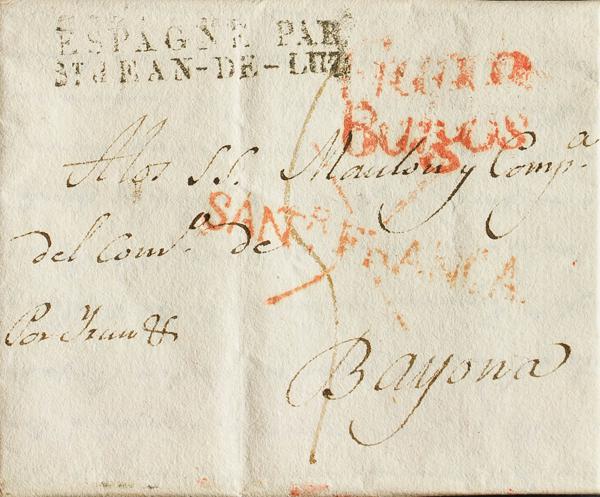 ESPAGNE PAR
ST JEAN-DE-LUZ
BURGOS
A los S.S. Maulon y Comp.a
SANT.R FRANCA.
del Com.o de
Por Irun &
Bayona